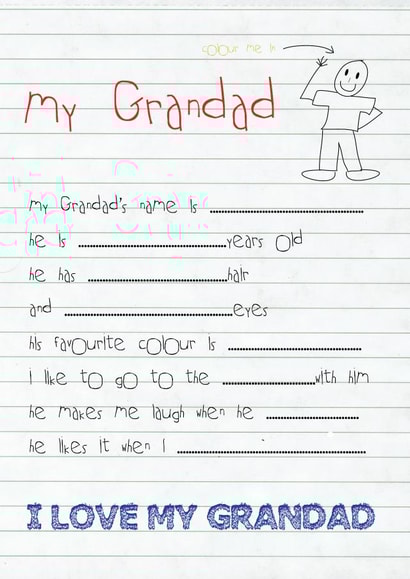 colour me in
my Grandad
my Grandad's name is ........................................
he is ........................................years old
he has ........................................hair
and ........................................eyes
his favourite colour is ........................................
i like to go to the ........................................with him
he makes me laugh when he ........................................
he likes it when I ........................................
I LOVE MY GRANDAD